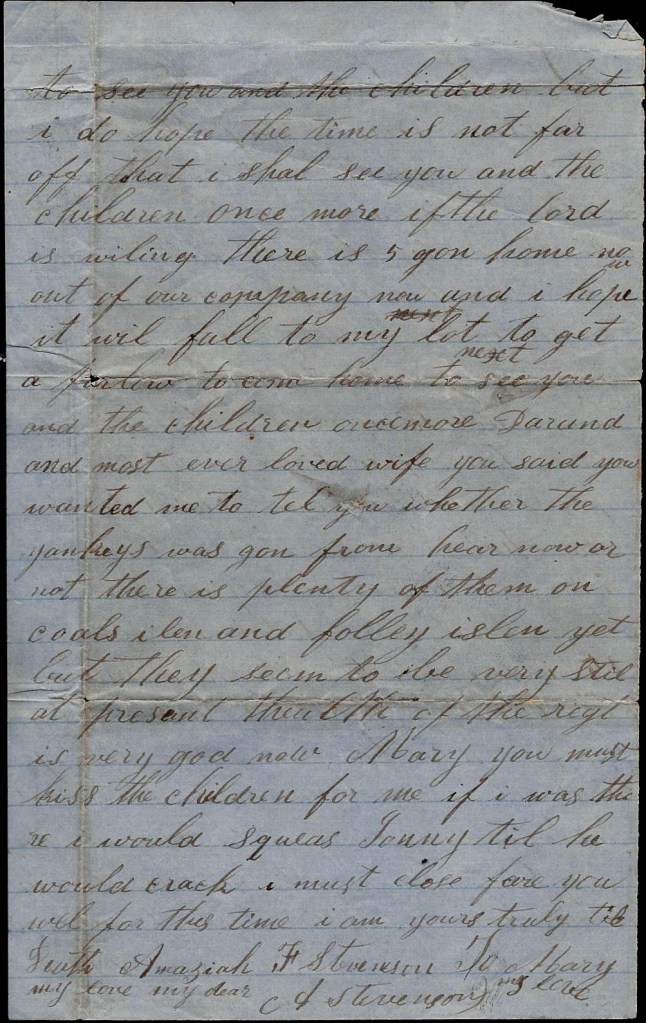 to see you and the children but
i do hope the time is not far
off that i shal see you and the
children once more if the lord
is wiling there is 5 gon home now
out of our company now and i hope
it wil fall to my lot next to get
a furlow to com home to see you
and the children oncemore Darund
and most ever loved wife you said you
wanted me to tel you whether the
yankeys was gon from hear now or
not there is plenty of them on
coals ilen and folley islen yet
but they seem to be very stil
at presant the of the regt
is very god now Mary you must
kiss the children for me if i was the
re i would squeas Jonny til he
would crack i must close fare you
wel for this time i am yours truly til
Death Amaziah F Stevenson To Mary
my love my dear A Stevenson my love